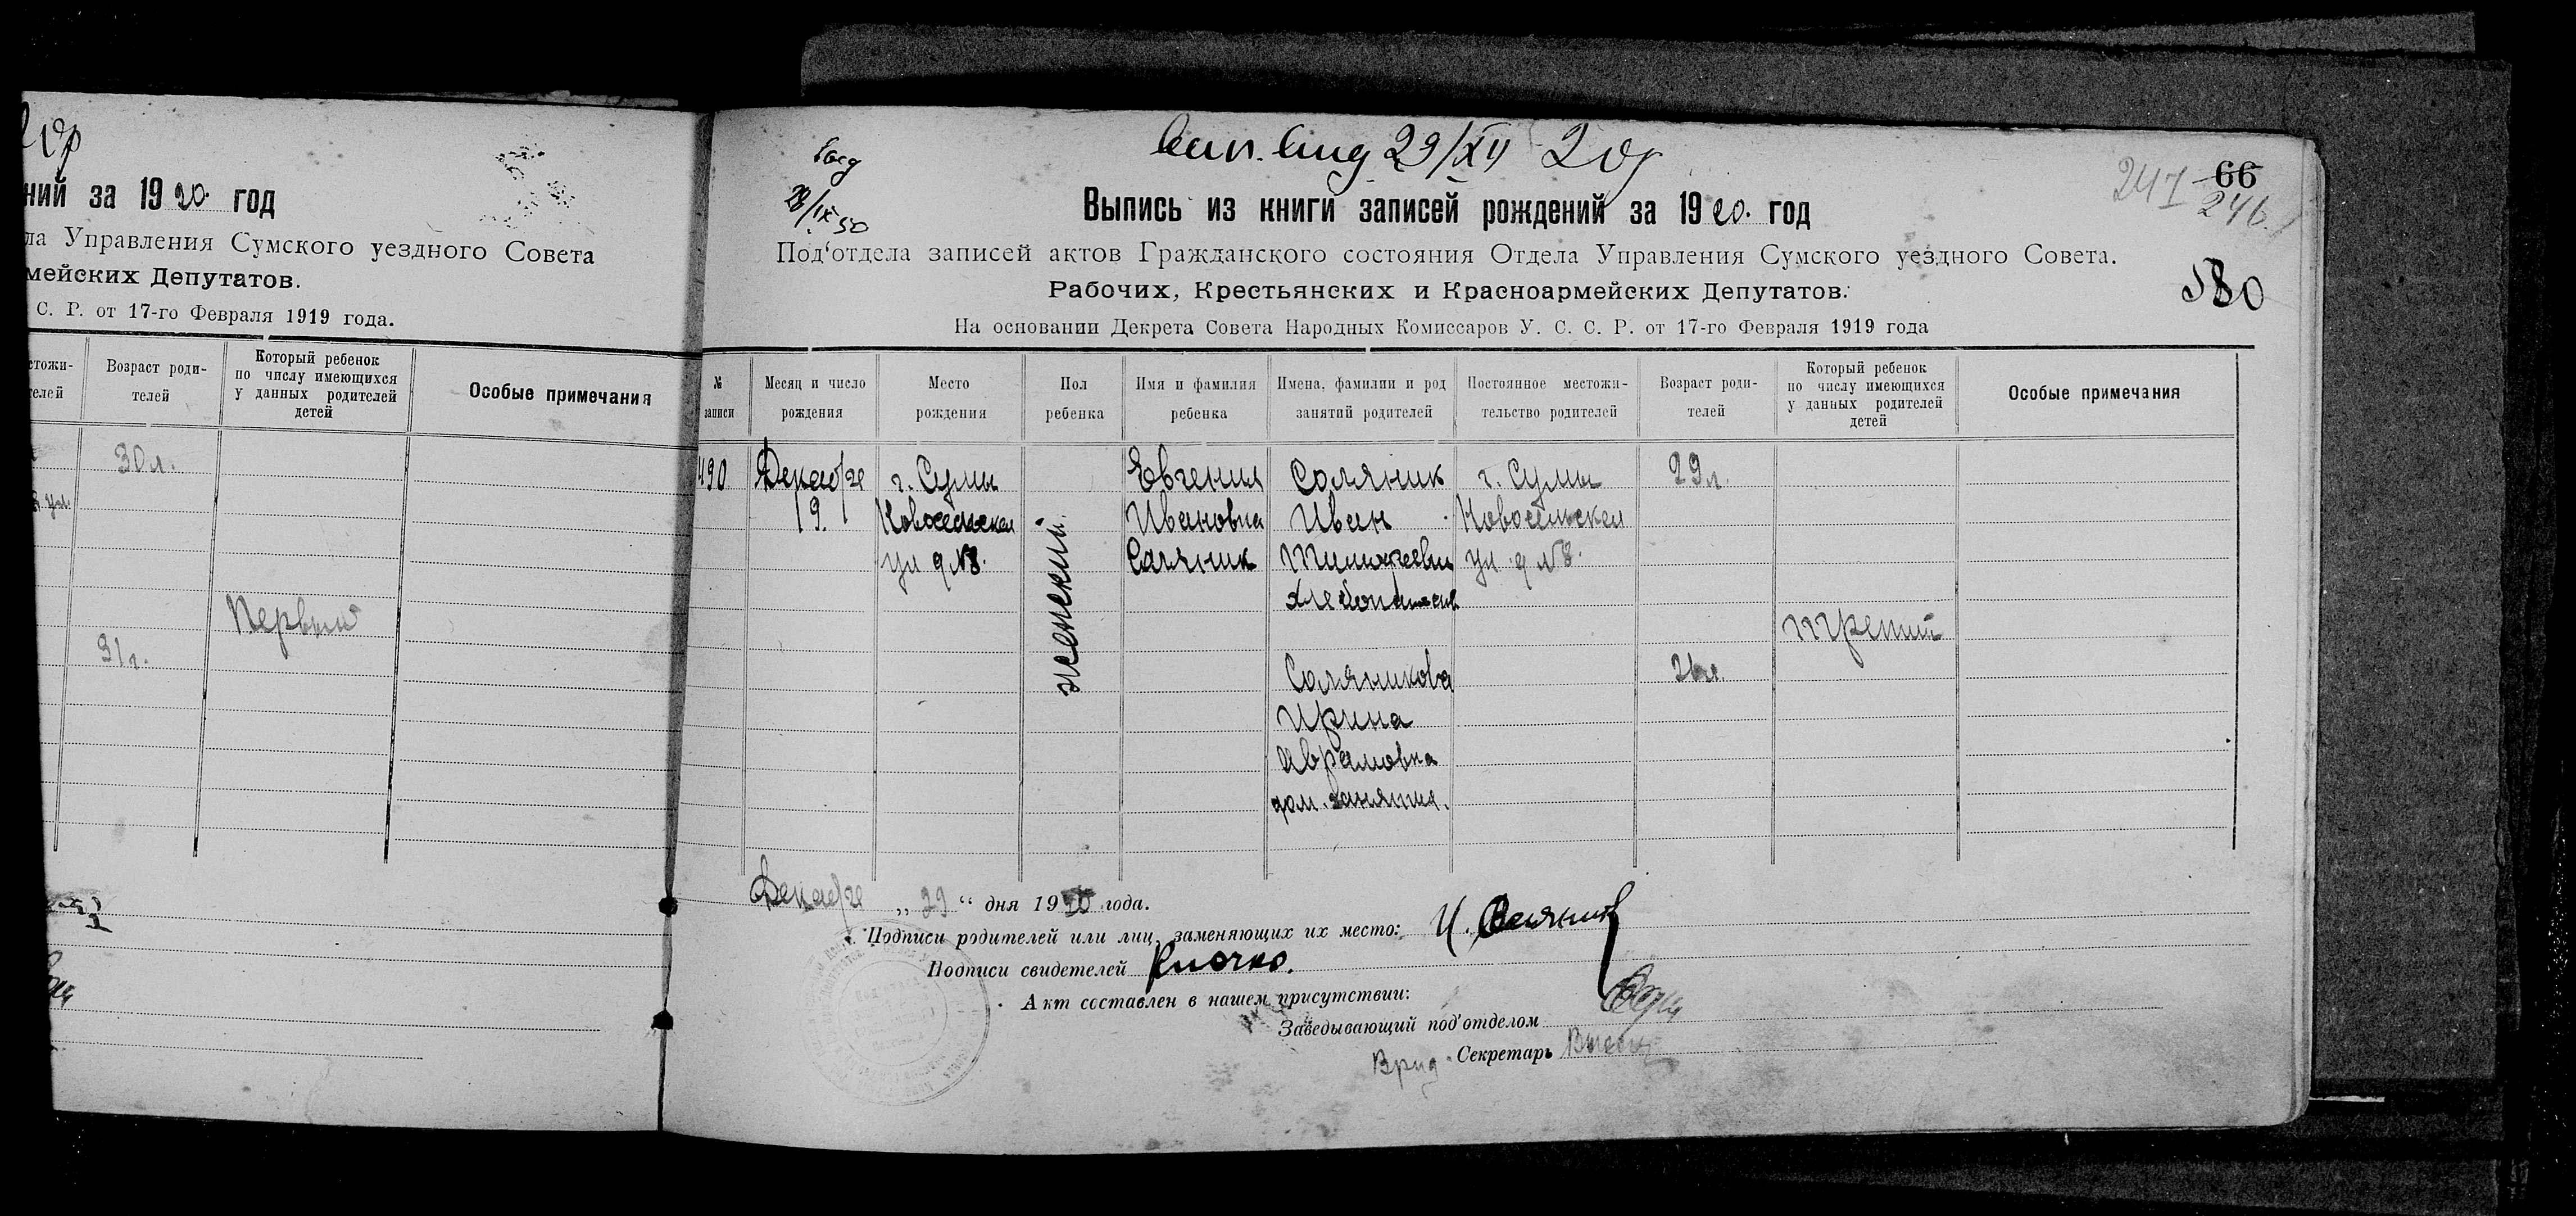 ний за 1920 год
ла Управления Сумского уездного Совета
мейских Депутатов.
С. Р. от 17-го Февраля 1919 года.
стожи-
телей
Возраст роди-
телей
Который ребенок
по числу имеющихся
у данных родителей
детей
Особые примечания
30 л.
Первый
31 г.
29/XII 20г
28/IX 50
247
66
246.
580
Выпись из книги записей рождений за 1920. год
Под'отдела записей актов Гражданского состояния Отдела Управления Сумского уездного Совета.
Рабочих, Крестьянских и Красноармейских Депутатов.
На основании Декрета Совета Народных Комиссаров У. С. С. Р. от 17-го Февраля 1919 года
№
записи
Месяц и число
рождения
Место
рождения
Пол
ребенка
Имя и фамилия
ребенка
Имена, фамилии и род
занятий родителей
Постоянное местожи-
тельство родителей
Возраст роди-
телей
Который ребенок
по числу имеющихся
у данных родителей
детей
Особые примечания
490
Декабре
19
г. Сумы
Новосельская
ул д №8.
женский.
Евгения
Ивановна
Саляник
Соляник
Иван
Тимофеевич
хлебопашец
г. Сумы
Новосельская
ул. д №8.
29 л.
третий
Соляникова
Ирина
Аврамовна
дом. занятия.
26 л.
Декабре „29“ дня 1920 года.
Подписи родителей или лиц, заменяющих их место: И. Соляник
Подписи свидетелей Клочко.
Акт составлен в нашем присутствии:
Заведывающий под'отделом
Врид. Секретарь